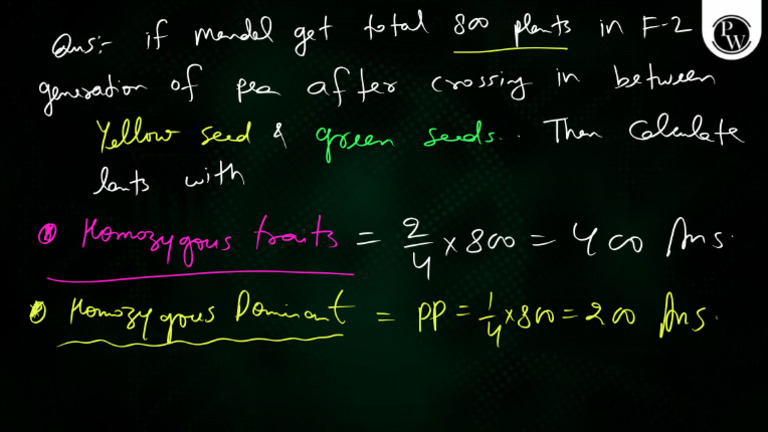 Qus:- if mendel get total 800 plants in F-2
generation of pea after crossing in between
Yellow seed & green seeds.. Then Calculate
lants with
Homozygous traits = 2/4 x 800 = 400 Ans.
Homozygous Dominant = PP = 1/4 x 800 = 200 Ans.
PW